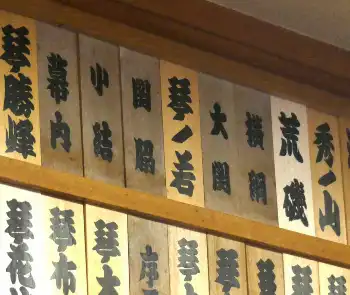 秀ノ山
荒磯
横綱
大関
琴ノ若
関脇
小結
幕内
琴勝峰
琴
琴
琴
琴
琴
序
琴
琴布
琴花